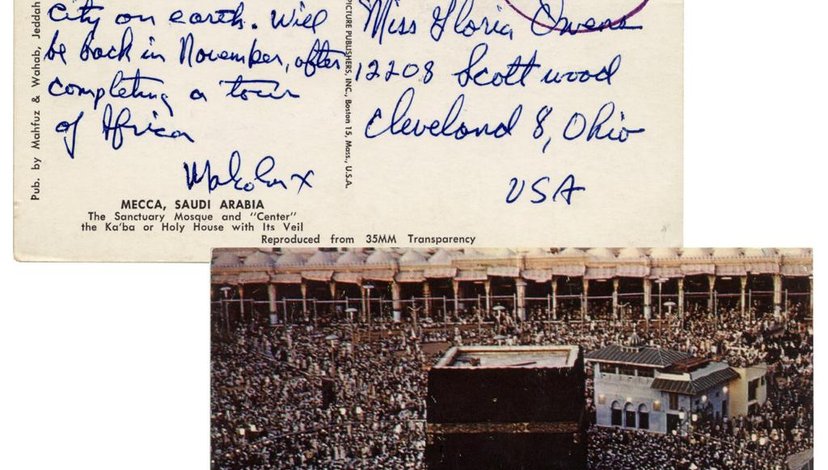 city on earth. Will
be back in November, after
completing a tour
of Africa
Malcolm X
MECCA, SAUDI ARABIA
The Sanctuary Mosque and "Center"
the Ka'ba or Holy House with Its Veil
Reproduced from 35MM Transparency
Pub. by Mahfuz & Wahab, Jeddah
PICTURE PUBLISHERS, INC., Boston 15, Mass., U.S.A.
Miss Gloria Owens
12208 Scottwood
Cleveland 8, Ohio
USA